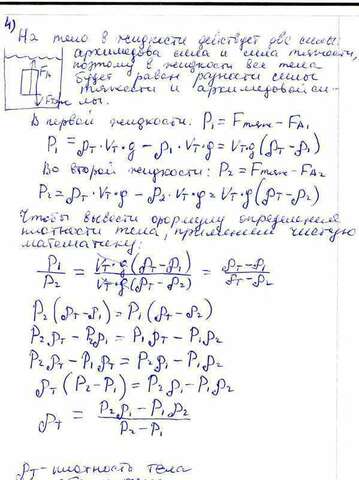 4) На тело в жидкости действует две силы:
архимедова сила и сила тяжести,
поэтому в жидкости вес тела
будет равен разности силы
тяжести и архимедовой си-
лы.
FA
Fтяж
В первой жидкости: P₁ = Fтяж – FA₁
P₁ = ρт · Vт · g – ρ₁ · Vт · g = Vт g (ρт – ρ₁)
Во второй жидкости: P₂ = Fтяж – FA₂
P₂ = ρт · Vт · g – ρ₂ · Vт · g = Vт g (ρт – ρ₂)
Чтобы вывести формулу определения
плотности тела, применяем чистую
математику:
P₁/P₂ = Vт · g (ρт – ρ₁)/Vт · g (ρт – ρ₂) = ρт – ρ₁/ρт – ρ₂
P₂ (ρт – ρ₁) = P₁ (ρт – ρ₂)
P₂ ρт – P₂ρ₁ = P₁ ρт – P₁ρ₂
P₂ ρт – P₁ρт = P₂ρ₁ – P₁ρ₂
ρт (P₂ – P₁) = P₂ρ₁ – P₁ρ₂
ρт = P₂ρ₁ – P₁ρ₂/P₂ – P₁
ρт – плотность тела